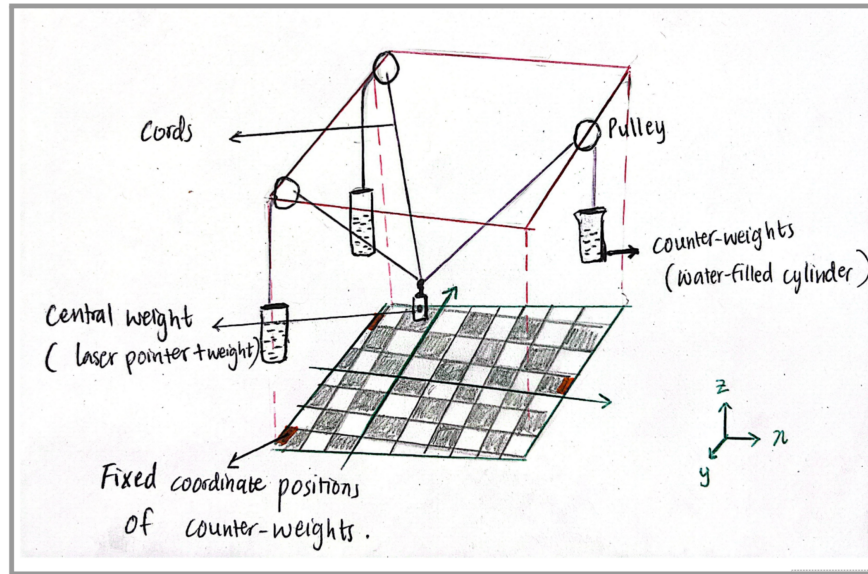 Cords
Pulley
counter-weights
(water-filled cylinder)
Central weight
( laser pointer + weight)
z
x
y
Fixed coordinate positions
of counter-weights.